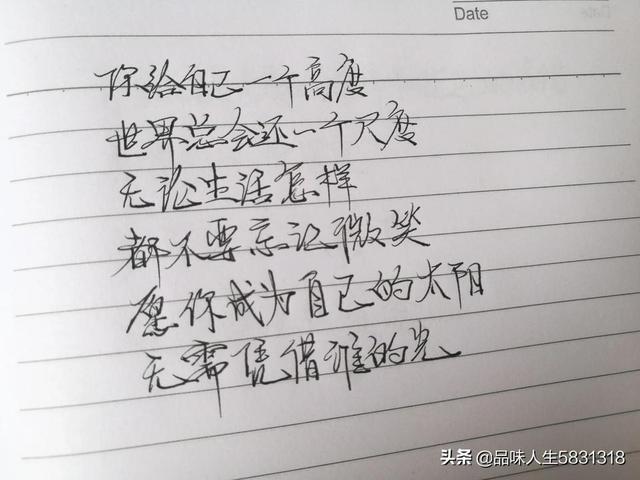 Date
你给自己一个高度
世界总会还一个尺度
无论生活怎样
都不要忘记微笑
愿你成为自己的太阳
无需凭借谁的光
头条 @品味人生5831318